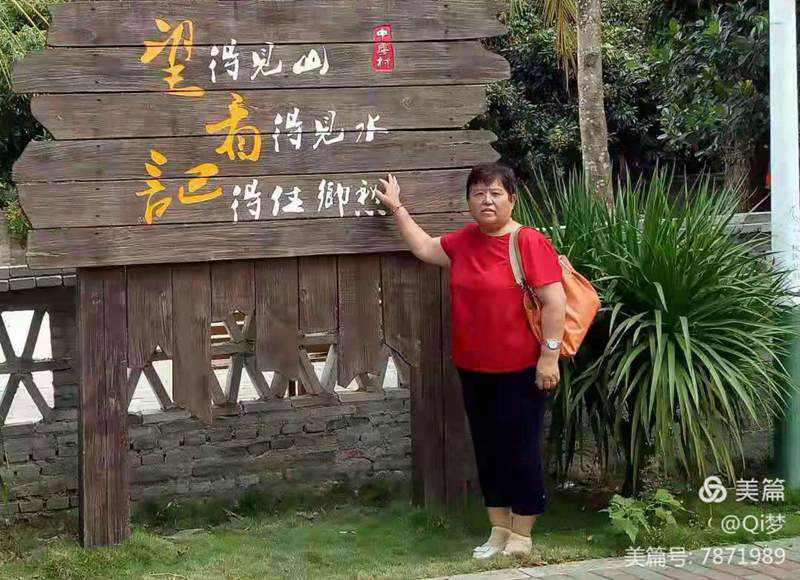 望得见山
中廖村
看得见水
记得住乡愁
美篇
@Qi梦
美篇号: 7871989